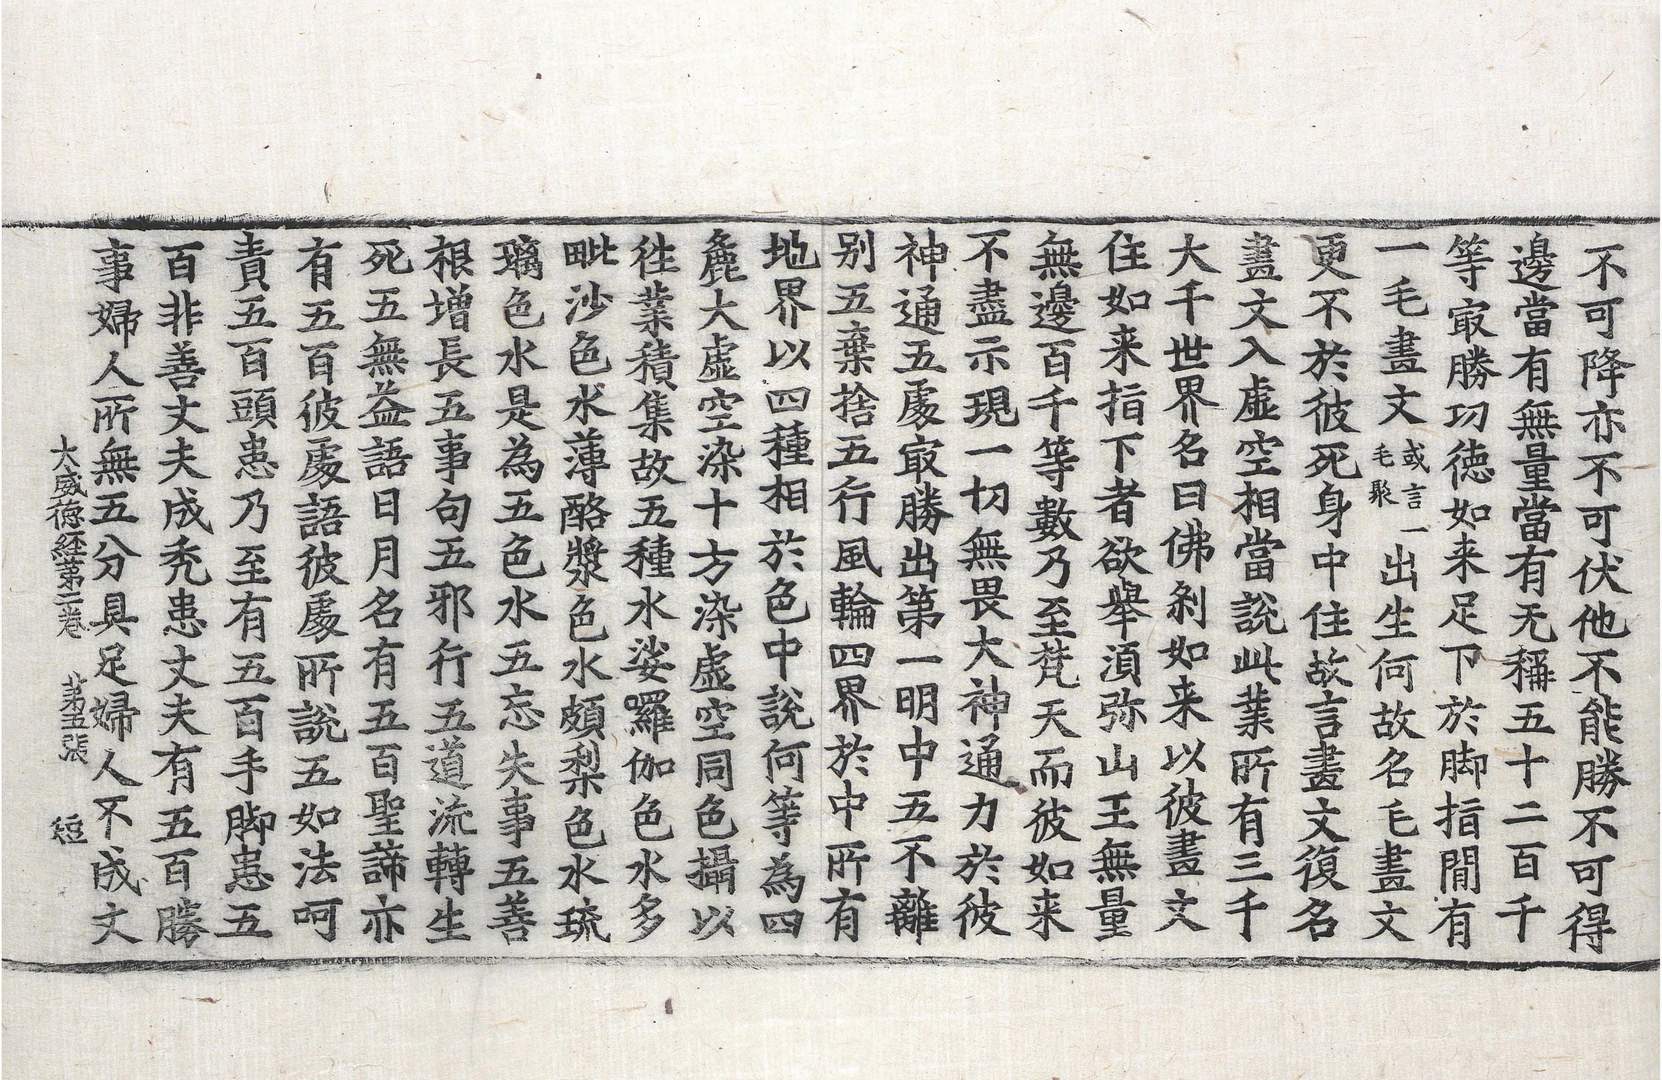 不可降亦不可伏他不能勝不可得
邊當有無量當有无稱五十二百千
等㝡勝功德如来足下於脚指間有
一毛畫文或言一毛聚出生何故名毛畫文
更不於彼死身中住故言畫文復名
畫文入虛空相當說此業所有三千
大千世界名曰佛剎如来以彼畫文
住如来指下者欲舉湏弥山王無量
無邊百千等數乃至梵天而彼如来
不盡示現一切無畏大神通力於彼
神通五處㝡勝出第一明中五不離
别五棄捨五行風輪四界於中所有
地界以四種相於色中說何等為四
麁大虛空染十方染虛空同色攝以
徃業積集故五種水娑羅伽色水多
毗沙色水薄酪漿色水頗梨色水琉
璃色水是為五色水五忘失事五善
根增長五事句五邪行五道流轉生
死五無益語日月名有五百聖諦亦
有五百彼處語彼處所說五如法呵
責五百頭患乃至有五百手脚患五
百非善丈夫成秃患丈夫有五百勝
事婦人所無五分具足婦人不成丈
大威德経第二卷　第五張　　経